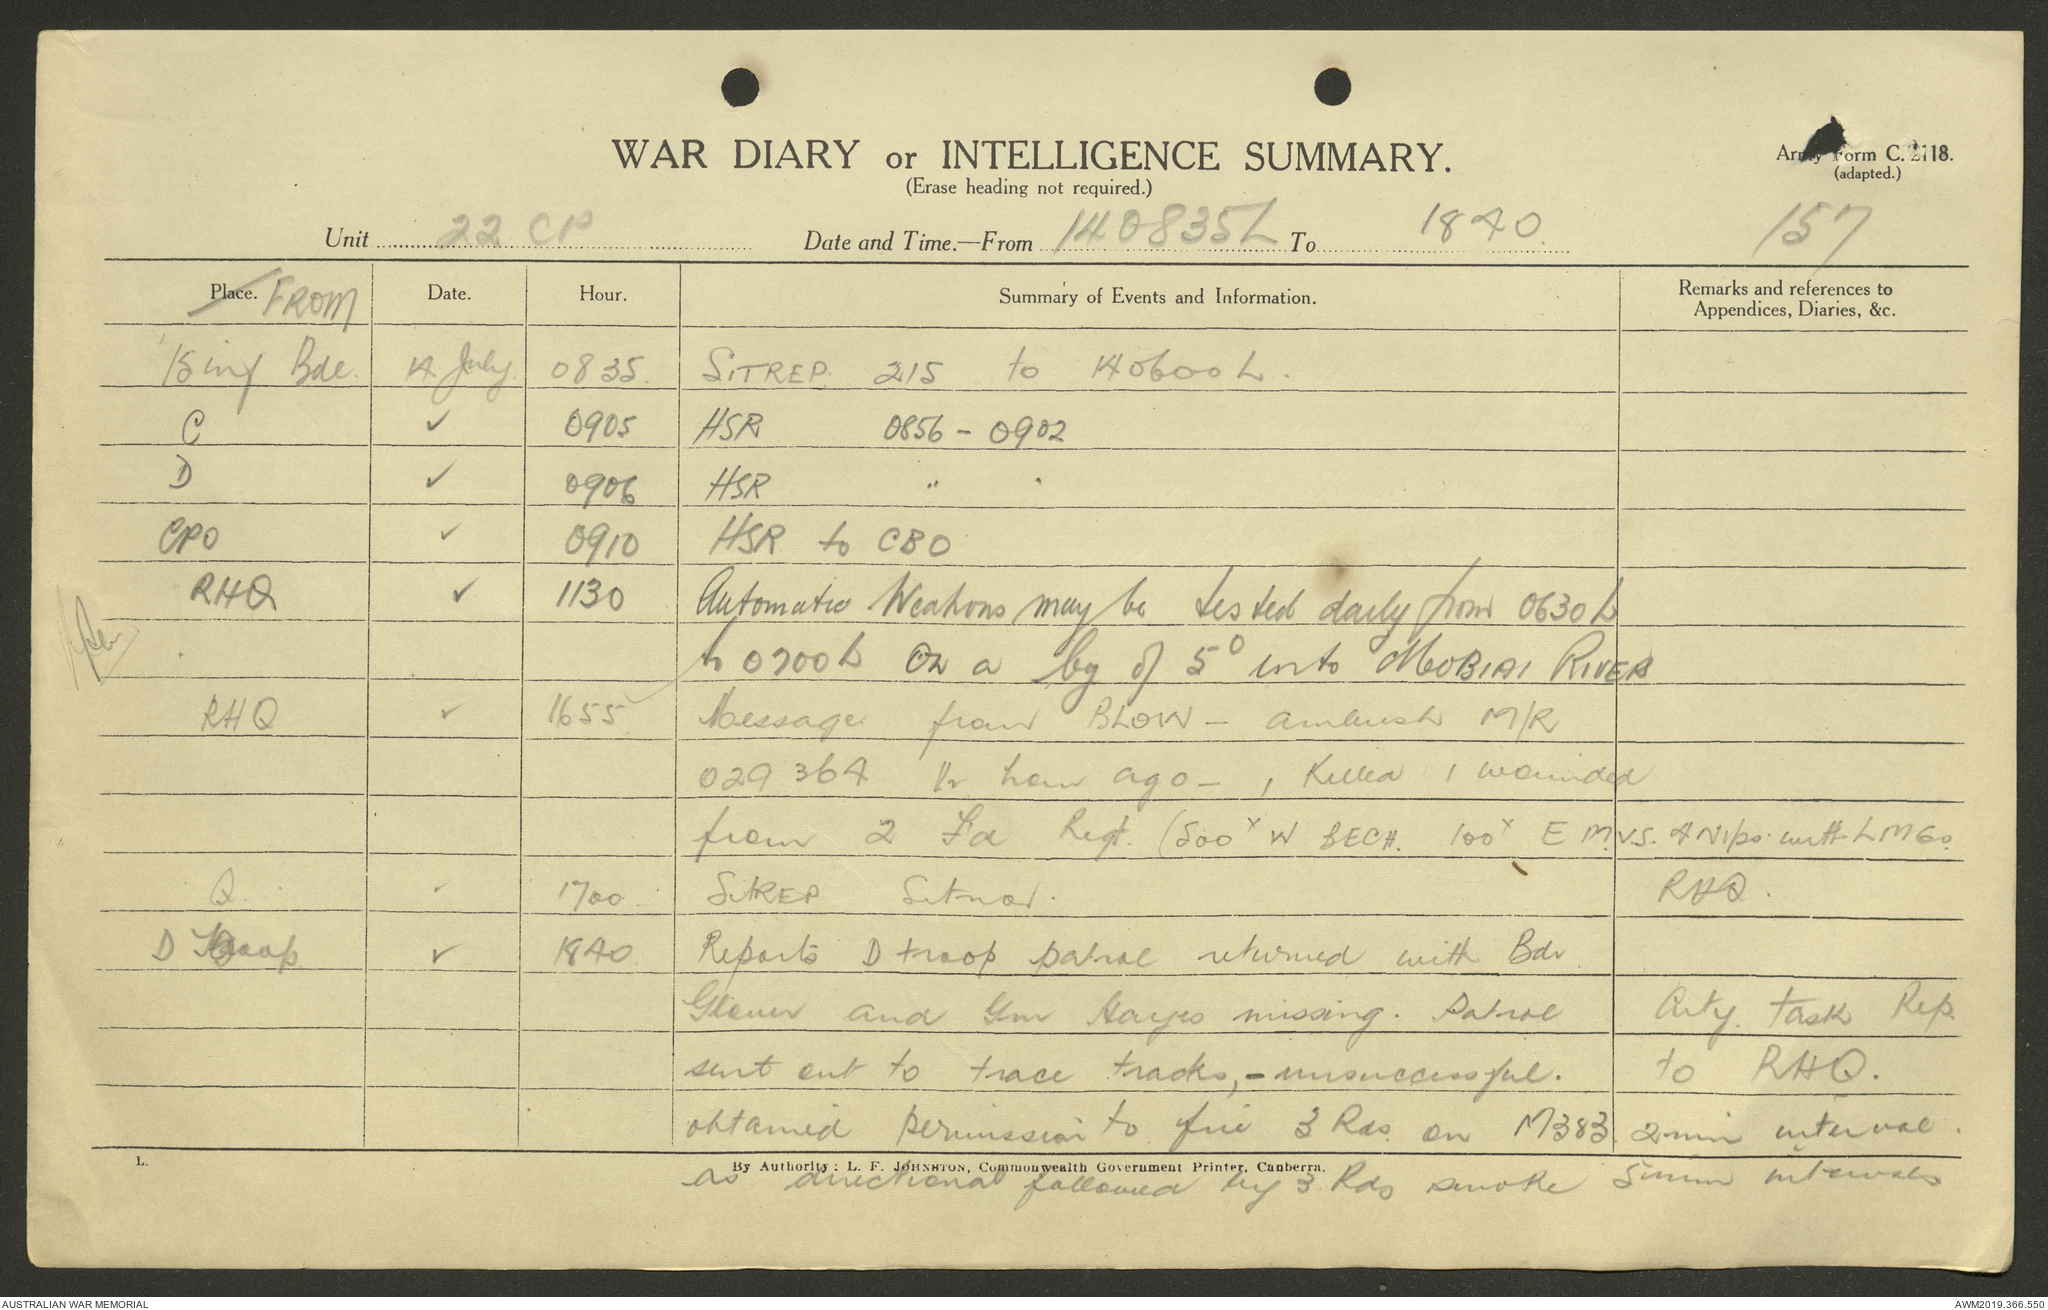 WAR DIARY or INTELLIGENCE SUMMARY.
(Erase heading not required.)
Army Form C. 2118.
(adapted.)
Unit 22 CP Date and Time.—From 140835L To 1840. 157
Place. FROM Date. Hour. Summary of Events and Information. Remarks and references to Appendices, Diaries, &c.
15 inf Bde. 14 July. 0835. SITREP. 215 to 140600L.
C ✓ 0905 HSR 0856 - 0902
D ✓ 0906 HSR " "
CPO ✓ 0910 HSR to CBO
RHQ ✓ 1130 Automatic Weapons may be tested daily from 0630L
to 0700L on a bg of 5° into MOBIAI RIVER
RHQ ✓ 1655 Message from BLOW - ambush M/R
029364 ½ hour ago - 1 Killed 1 wounded
from 2 Fd Regt. (500x W BECH. 100x E M.V.S. 4 Nips with LMGs.
Q. ✓ 1700. SITREP Sitnor. RHQ.
D Troop ✓ 1840. Reports D troop patrol returned with Bdr
Glover and Gnr Hayes missing. Patrol Arty. Task Rep.
sent out to trace tracks, - unsuccessful. to RHQ.
obtained permission to fire 3 Rds. on M383. 2 min interval.
L. By Authority: L. F. JOHNSTON, Commonwealth Government Printer, Canberra.
as directional followed by 3 Rds smoke 5 min intervals
AUSTRALIAN WAR MEMORIAL
AWM2019.366.550